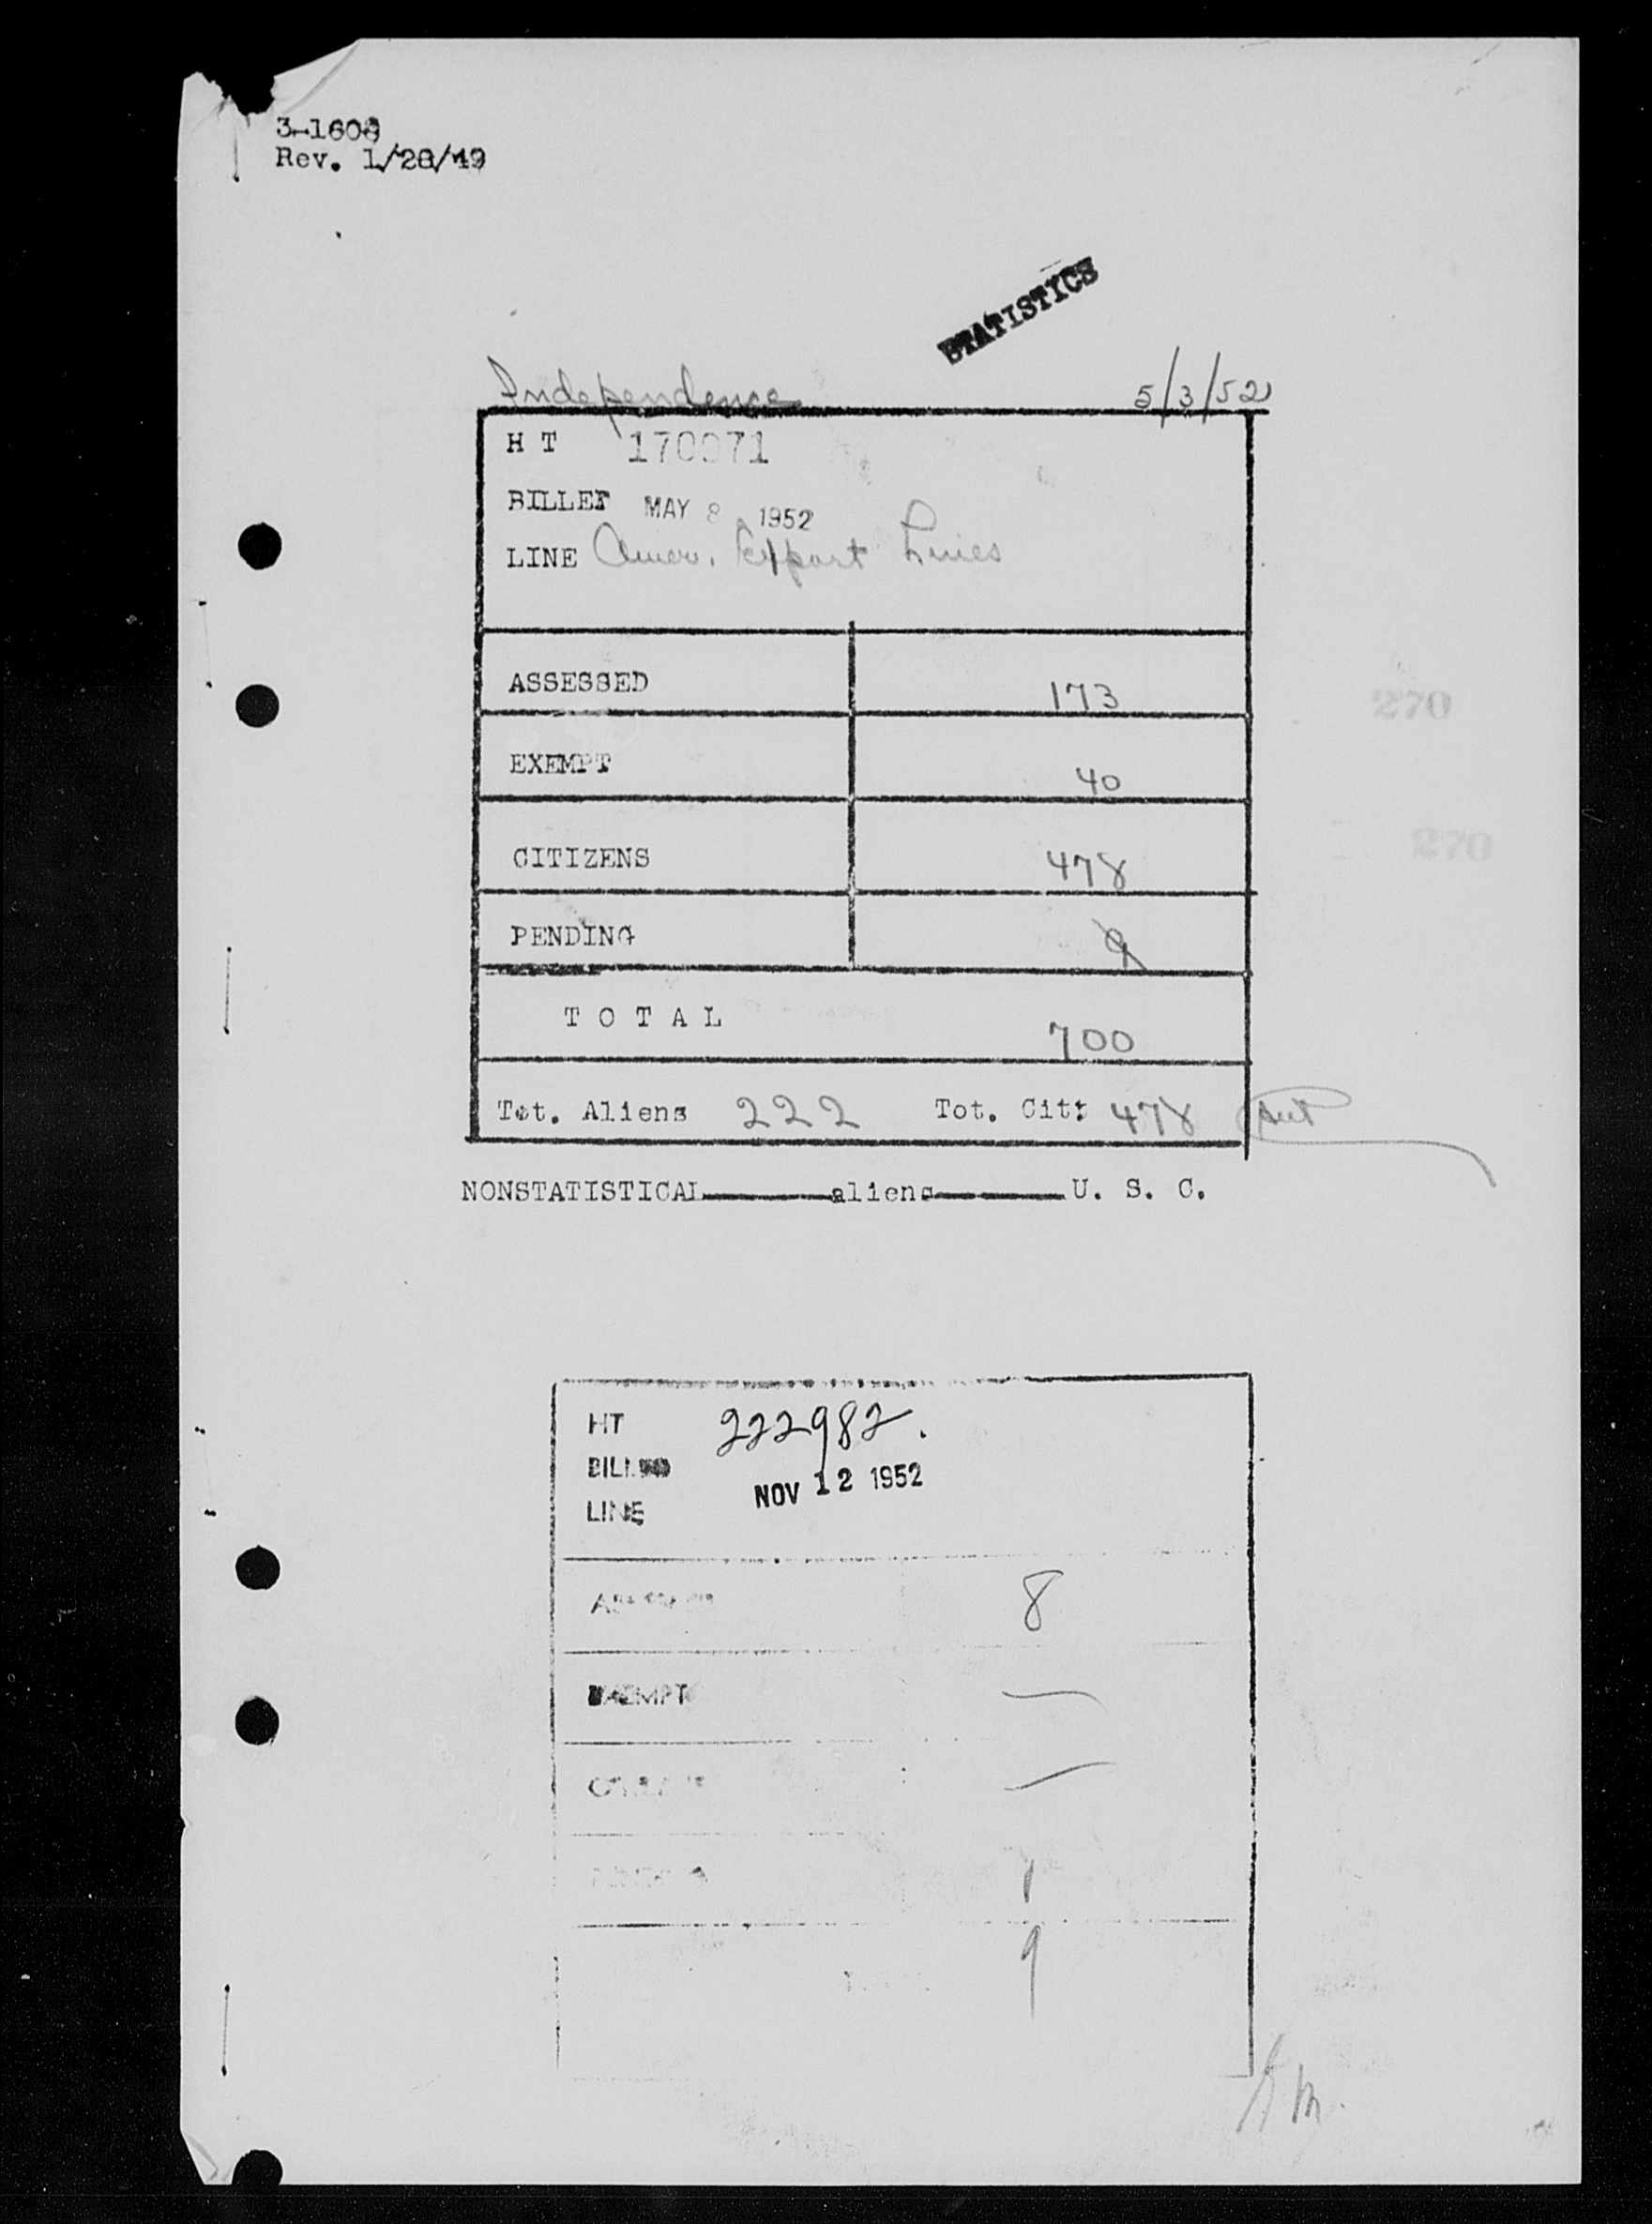 3-1608
Rev. 1/28/49
STATISTICS
Independence 5/3/52
H T 170071
BILLED MAY 8 1952
LINE Amer. Export Lines
ASSESSED 173
EXEMPT 40
CITIZENS 478
PENDING 9
T O T A L 700
Tot. Aliens 222 Tot. Cit: 478
NONSTATISTICAL aliens U. S. C.
270
270
HT 222982.
BILLED NOV 12 1952
LINE
8
EXEMPT —
—
1
9